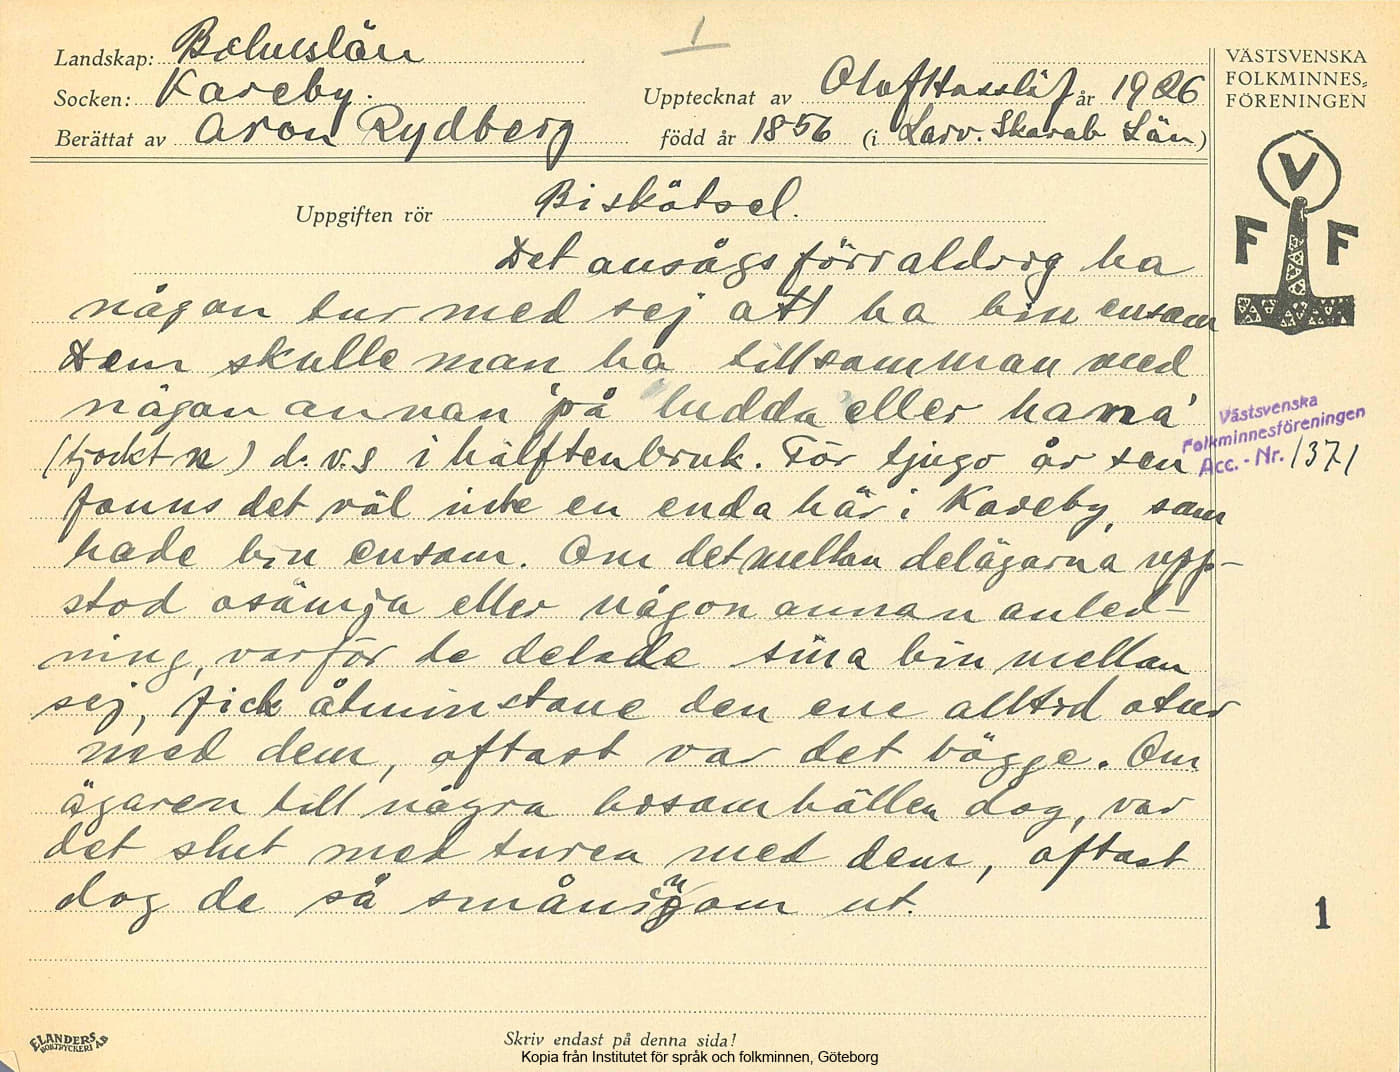 1
Landskap: Bohuslän
Socken: Kareby.
Upptecknat av Olof Hasslöf år 1926
Berättat av Aron Rydberg född år 1856 (i Larv. Skarab. Län)
VÄSTSVENSKA
FOLKMINNES=
FÖRENINGEN
V
F F
Uppgiften rör Biskötsel.
Det ansågs förr aldrig ha
någon tur med sej att ha bin ensam
Dem skulle man ha tillsamman med
någon annan 'på ludda' eller hanna'
(tjockt n) d.v.s i hälftenbruk. För tjugo år sen
fanns det väl inte en enda här i Kareby, som
hade bin ensam. Om det mellan delägarna upp-
stod osämja eller någon annan anled-
ning, varför de delade sina bin mellan
sej, fick åtminstone den ene alltid otur
med dem, oftast var det bägge. Om
ägaren till några bisamhällen dog, var
det slut med turen med dem, oftast
dog de så småningom ut.
Västsvenska
Folkminnesföreningen
Acc. - Nr. 1371
1
ELANDERS
BOKTRYCKERI AB
Skriv endast på denna sida!
Kopia från Institutet för språk och folkminnen, Göteborg